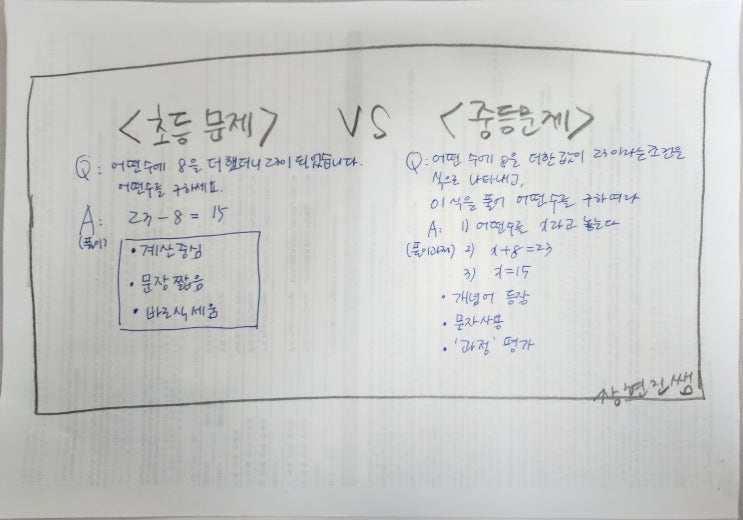 <초등 문제> VS <중등문제>
Q: 어떤수에 8을 더했더니 23이 되었습니다.
어떤수를 구하세요.
A: 23-8 = 15
(풀이)
• 계산중심
• 문장 짧음
• 바로식세움
Q: 어떤 수에 8을 더한 값이 23이라는 조건을
식으로 나타내고,
이 식을 풀어 어떤수를 구하여라
A: 1) 어떤수를 x라고 놓는다
(풀이과정) 2) x+8=23
3) x=15
• 개념어 등장
• 문자사용
• '과정' 평가
상현진쌤